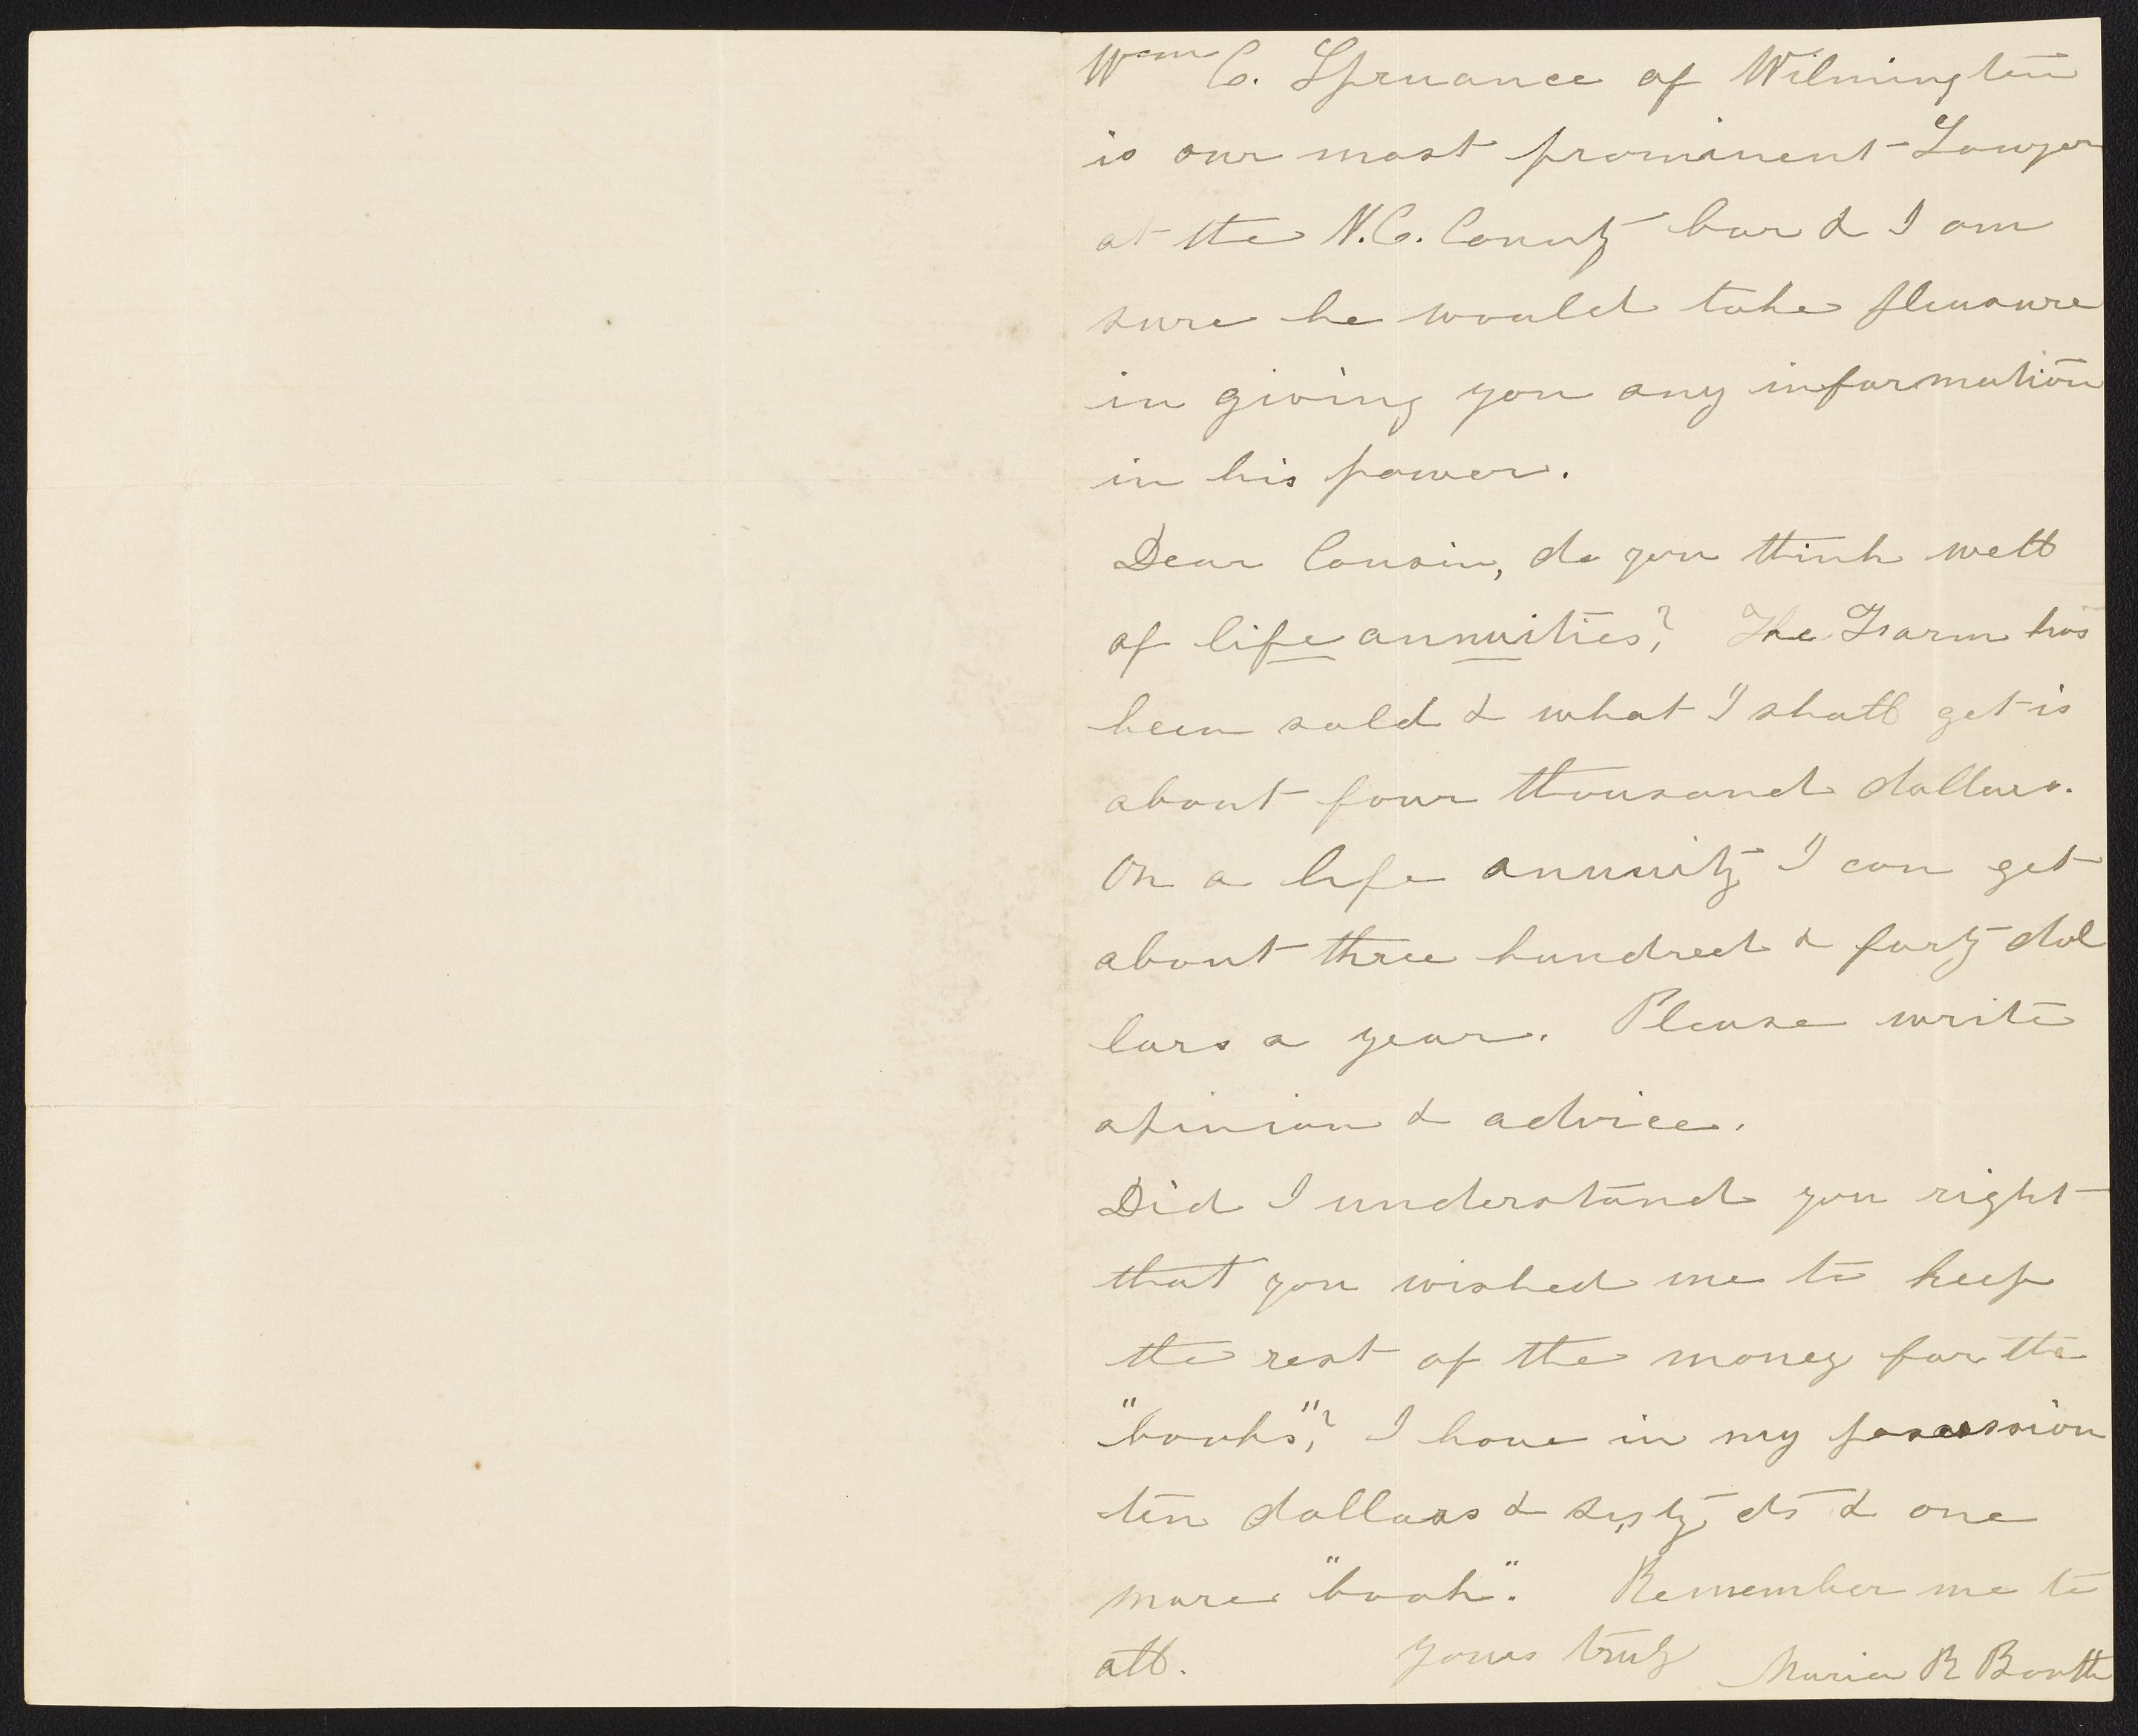 Wm C. Spruance of Wilmington
is our most prominent Lawyer
at the N.C. County bar & I am
sure he would take pleasure
in giving you any information
in his power.
Dear Cousin, do you think well
of life annuities? The Farm has
been sold & what I shall get is
about four thousand dollars.
On a life annuity I can get
about three hundred & forty dol
lars a year. Please write
opinion & advice.
Did I understand you right
that you wished me to keep
the rest of the money for the
"books"? I have in my possession
ten dollars & sixty cts & one
more "book". Remember me to
all. Yours truly Maria R Booth